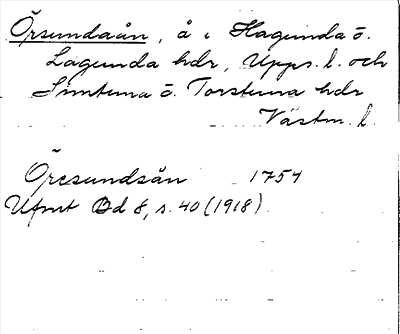 Örsundaån, å i Hagunda o.
Lagunda hdr, Upps. l. och
Simtuna o. Torstuna hdr
Västm. l.
Öresundsån 1754
Ufmt Bd 8, s. 40 (1918).